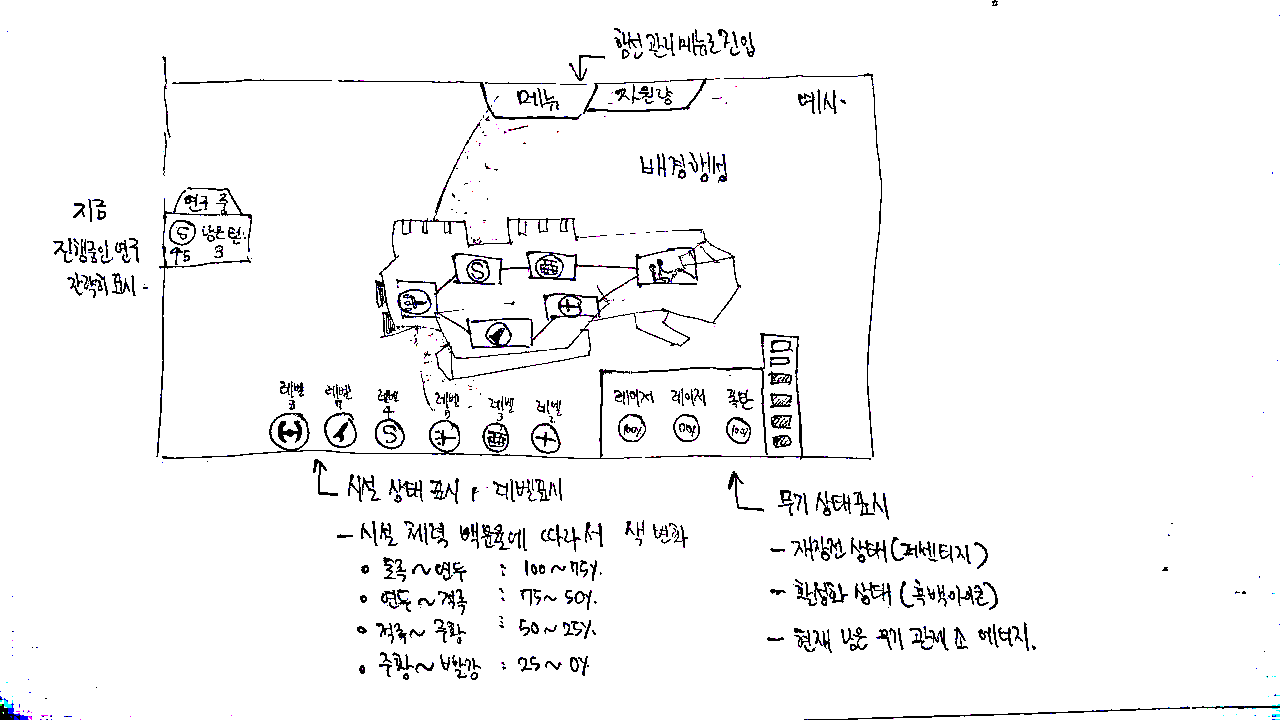 함선 관리 메뉴로 진입
메뉴
자원량
예시.
배경행성
지금
진행중인 연구
간략히 표시.
연구 중
S 남은 턴.
↑5 3
S
레벨
3
레벨
레벨
4
S
레벨
레벨
3
레벨
레이저 레이저 폭탄
100% 70% 100%
시설 상태 표시, 레벨표시
- 시설 체력 백분율에 따라서 색 변화
• 초록~연두 : 100~75%.
• 연두~격록 : 75~50%.
• 적록~주황 : 50~25%.
• 주황~빨강 : 25~0%
무기 상태표시
- 재장전 상태(퍼센티지)
- 활성화 상태(흑백아이콘)
- 현재 남은 무기 관제소 에너지.